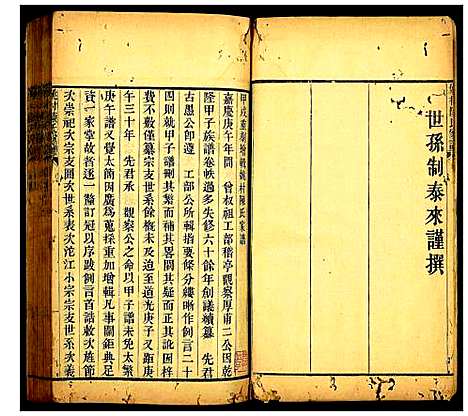 世孫制泰來謹撰
甲戌重刻增輯姚村陳氏家譜
嘉慶庚午年間 曾叔祖工部稽亭觀察厚甫二公因乾
隆甲子族譜卷帙過多失修六十餘年創議續纂 先君
古愚公卽遵 工部公所輯指要條分縷晰作例言二十
四則以其甲子譜刊其繁而補其畧闕其疑而正其訛因梓
費不敷僅纂宗支世系餘槪未及迨至道光庚子又踰庚
午三十年 先君承 觀察公之命以甲子譜未免太繁
庚午譜又覺太簡因廣爲蒐採重加增輯凡事關鉅典足
資一家掌故者逐一釐訂冠以序跋例言首誥敕次旌節
次崇祀次宗支圖次世系表次沱江小宗宗支世系次義